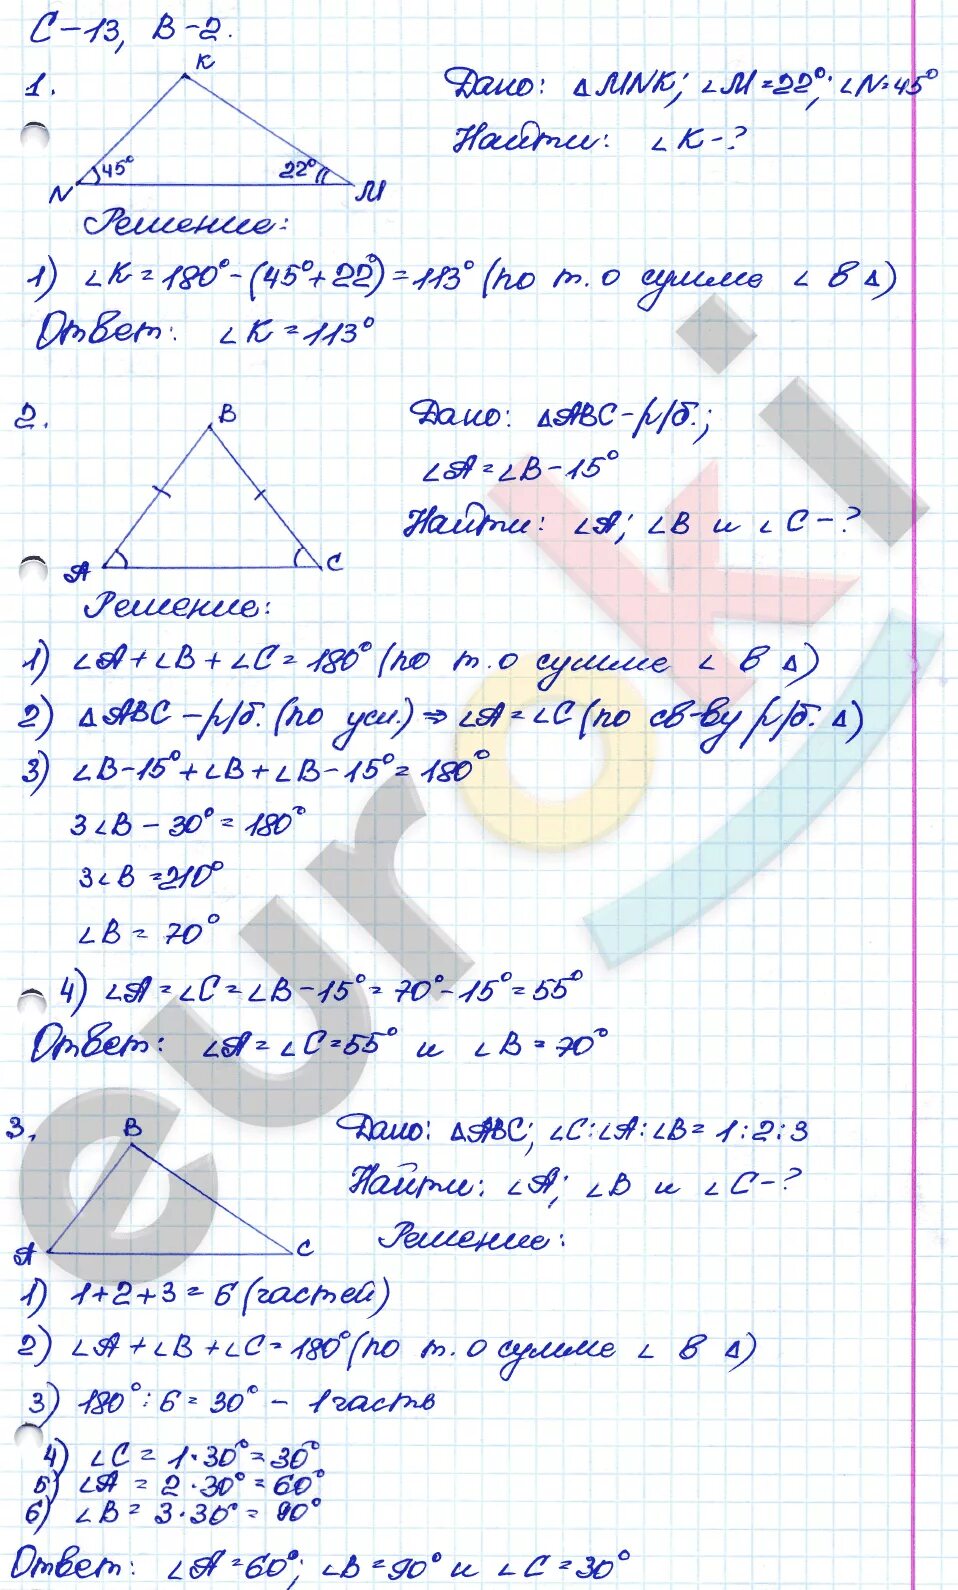 С-13, В-2.
1.
K
45° 22°
N M
Дано: △MNK; ∠M=22°; ∠N=45°
Найти: ∠K-?
Решение:
1) ∠K=180°-(45°+22°)=113° (по т. о сумме ∠ в △)
Ответ: ∠K=113°
2.
B
A C
Дано: △ABC-р/б.;
∠A=∠B-15°
Найти: ∠A; ∠B и ∠C-?
Решение:
1) ∠A+∠B+∠C=180° (по т. о сумме ∠ в △)
2) △ABC-р/б. (по усл.) ⇒ ∠A=∠C (по св-ву р/б. △)
3) ∠B-15°+∠B+∠B-15°=180°
3∠B-30°=180°
3∠B=210°
∠B=70°
4) ∠A=∠C=∠B-15°=70°-15°=55°
Ответ: ∠A=∠C=55° и ∠B=70°
3.
B
A C
Дано: △ABC; ∠C:∠A:∠B=1:2:3
Найти: ∠A; ∠B и ∠C-?
Решение:
1) 1+2+3=6 (частей)
2) ∠A+∠B+∠C=180° (по т. о сумме ∠ в △)
3) 180°:6=30° - 1 часть
4) ∠C=1·30°=30°
5) ∠A=2·30°=60°
6) ∠B=3·30°=90°
Ответ: ∠A=60°; ∠B=90° и ∠C=30°
euroki